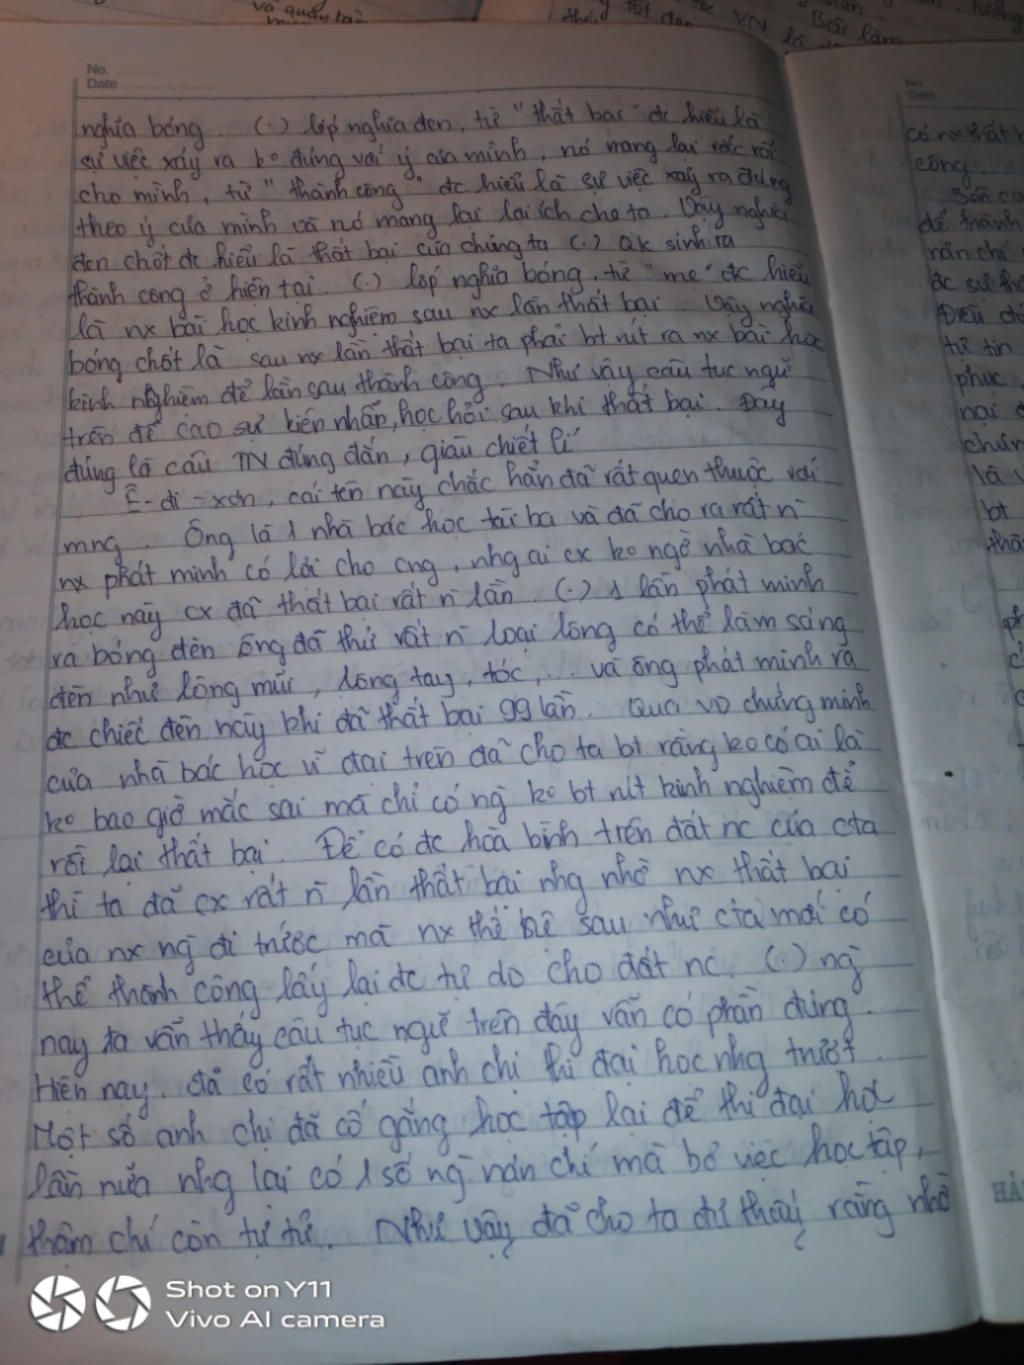 và quấy
tốt
VN là
Bài làm
No. ..........
Date ......................
nghĩa bóng. (.) lớp nghĩa đen, từ "thất bại" đc hiểu là
sự việc xảy ra ko đúng với ý của mình, nó mang lại rắc rối
cho mình, từ "thành công" đc hiểu là sự việc xảy ra đúng
theo ý của mình và nó mang lại lợi ích cho ta. Vậy nghĩa
đen chốt đc hiểu là thất bại của chúng ta (.) QK sinh ra
thành công ở hiện tại. (.) lớp nghĩa bóng, từ "mẹ" đc hiểu
là nx bài học kinh nghiệm sau nx lần thất bại. Vậy nghĩa
bóng chốt là sau nx lần thất bại ta phải bt rút ra nx bài học
kinh nghiệm để lần sau thành công. Như vậy câu tục ngữ
trên đề cao sự kiên nhẫn, học hỏi sau khi thất bại. Đây
đúng là câu TN đúng đắn, giàu chiết lí
Ê-đi-xơn, cái tên này chắc hẳn đã rất quen thuộc với
mng. Ông là 1 nhà bác học tài ba và đã cho ra rất n̄
nx phát minh có lời cho cng, nhg ai cx ko ngờ nhà bác
học này cx đã thất bại rất n̄ lần. (.) 1 lần phát minh
ra bóng đèn ông đã thử rất n̄ loại lông có thể làm sáng
đèn như lông mũi, lông tay, tóc,... và ông phát minh ra
đc chiếc đèn này khi đã thất bại 99 lần. Qua VD chứng minh
của nhà bác học vĩ đại trên đã cho ta bt rằng ko có ai là
ko bao giờ mắc sai mà chỉ có ng ko bt rút kinh nghiệm để
rồi lại thất bại. Để có đc hoà bình trên đất nc của cta
thì ta đã cx rất n̄ lần thất bại nhg nhờ nx thất bại
của nx ng đi trước mà nx thế hệ sau như cta mới có
thể thành công lấy lại đc tự do cho đất nc. (.) ng
nay ta vẫn thấy câu tục ngữ trên đây vẫn có phần đúng.
Hiện nay, đã có rất nhiều anh chị thi đại học nhg trượt.
Một số anh chị đã cố gắng học tập lại để thi đại học
lần nữa nhg lại có 1 số ng nản chí mà bỏ việc học tập,
thậm chí còn tự tử. Như vậy đã cho ta thấy rằng nhờ
No.
Date
có nx thất b
công.
để thành
nản chí
đc sự th
tự tin
phục
nại
chún
là
bt
HẢ
Shot on Y11
Vivo AI camera